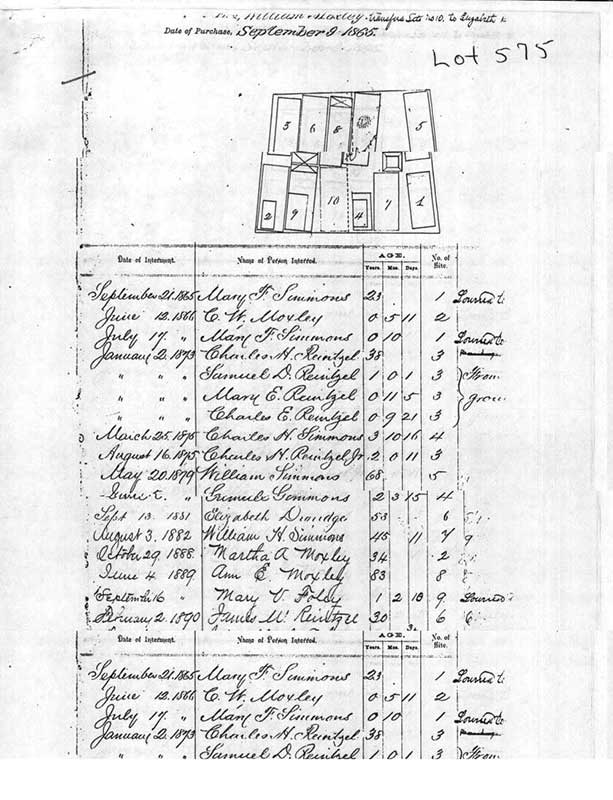 William Moxley transfers Site No 10. to Elizabeth
Date of Purchase, September 9 1865.
Lot 575
3 6 8 5
2 9 10 4 7 1
Date of Interment. Name of Person Interred. AGE. No. of Site.
Years. Mos. Days.
September 21. 1865 Mary F. Simmons 23 1
June 12. 1866 C. W. Moxley 0 5 11 2
July 17. " Mary F. Simmons 0 10 1
January 2. 1873 Charles H. Reintzel 38 3
" " " Samuel D. Reintzel 1 0 1 3 From
" " " Mary E. Reintzel 0 11 5 3
" " " Charles E. Reintzel 0 9 21 3
March 25. 1875 Charles H. Simmons 3 10 16 4
August 16. 1875 Charles H. Reintzel, Jr. 2 0 11 3
May 20. 1879 William Simmons 68 5
" 2 3 15 4
Sept 13. 1881 Elizabeth 53 6
August 3, 1882 William H. Simmons 45 11 7 9
October 29. 1888. Martha A Moxley 34 2
June 4. 1889. Ann E. Moxley 83 8
September 16 " Mary V. Foley 1 2 18 9
February 2. 1890 James M. Reintzel 30 6 6
Date of Interment. Name of Person Interred. AGE. No. of Site.
Years. Mos. Days.
September 21. 1865 Mary F. Simmons 23 1
June 12. 1866 C. W. Moxley 0 5 11 2
July 17. " Mary F. Simmons 0 10 1
January 2. 1873 Charles H. Reintzel 38 3
" " " Samuel D. Reintzel 1 0 1 3 From